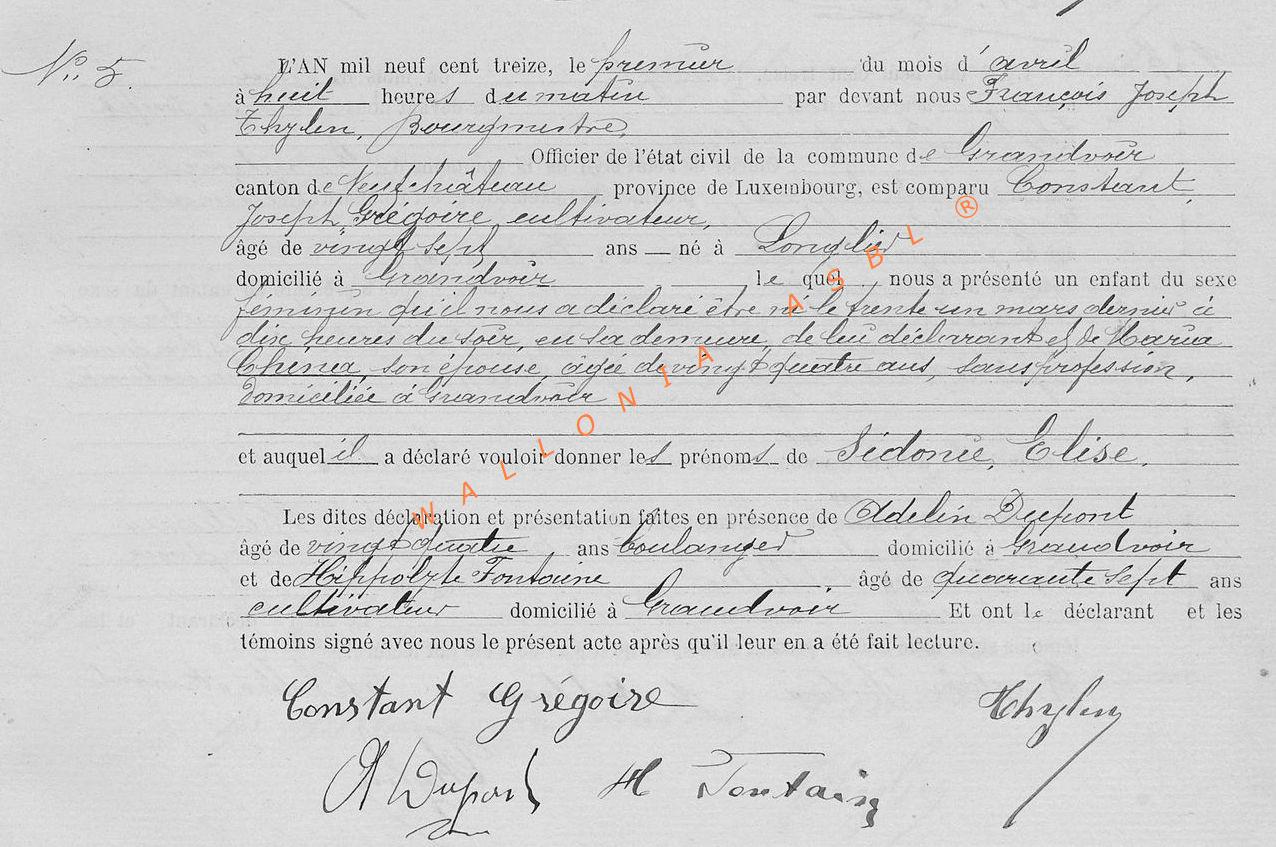 N° 5.
L'AN mil neuf cent treize, le premier du mois d'avril
à huit heures du matin par devant nous François Joseph
Thylen, Bourgmestre,
Officier de l'état civil de la commune de Grandvoir
canton de Neufchâteau province de Luxembourg, est comparu Constant,
Joseph Grégoire, cultivateur,
âgé de vingt sept ans né à Longlier
domicilié à Grandvoir le quel nous a présenté un enfant du sexe
féminin qu'il nous a déclaré être né le trente un mars dernier à
dix heures du soir, en sa demeure, de lui déclarant et de Maria
son épouse, âgée de vingt quatre ans, sans profession,
domiciliée à Grandvoir
et auquel il a déclaré vouloir donner les prénoms de Sidonie, Elise.
Les dites déclaration et présentation faites en présence de Adelin Dupont
âgé de vingt quatre ans boulanger domicilié à Grandvoir
et de Hippolyte Fontaine, âgé de quarante sept ans
cultivateur domicilié à Grandvoir Et ont le déclarant et les
témoins signé avec nous le présent acte après qu'il leur en a été fait lecture.
Constant Grégoire Thylen
A Dupont H Fontaine
WALLONIA ASBL ®